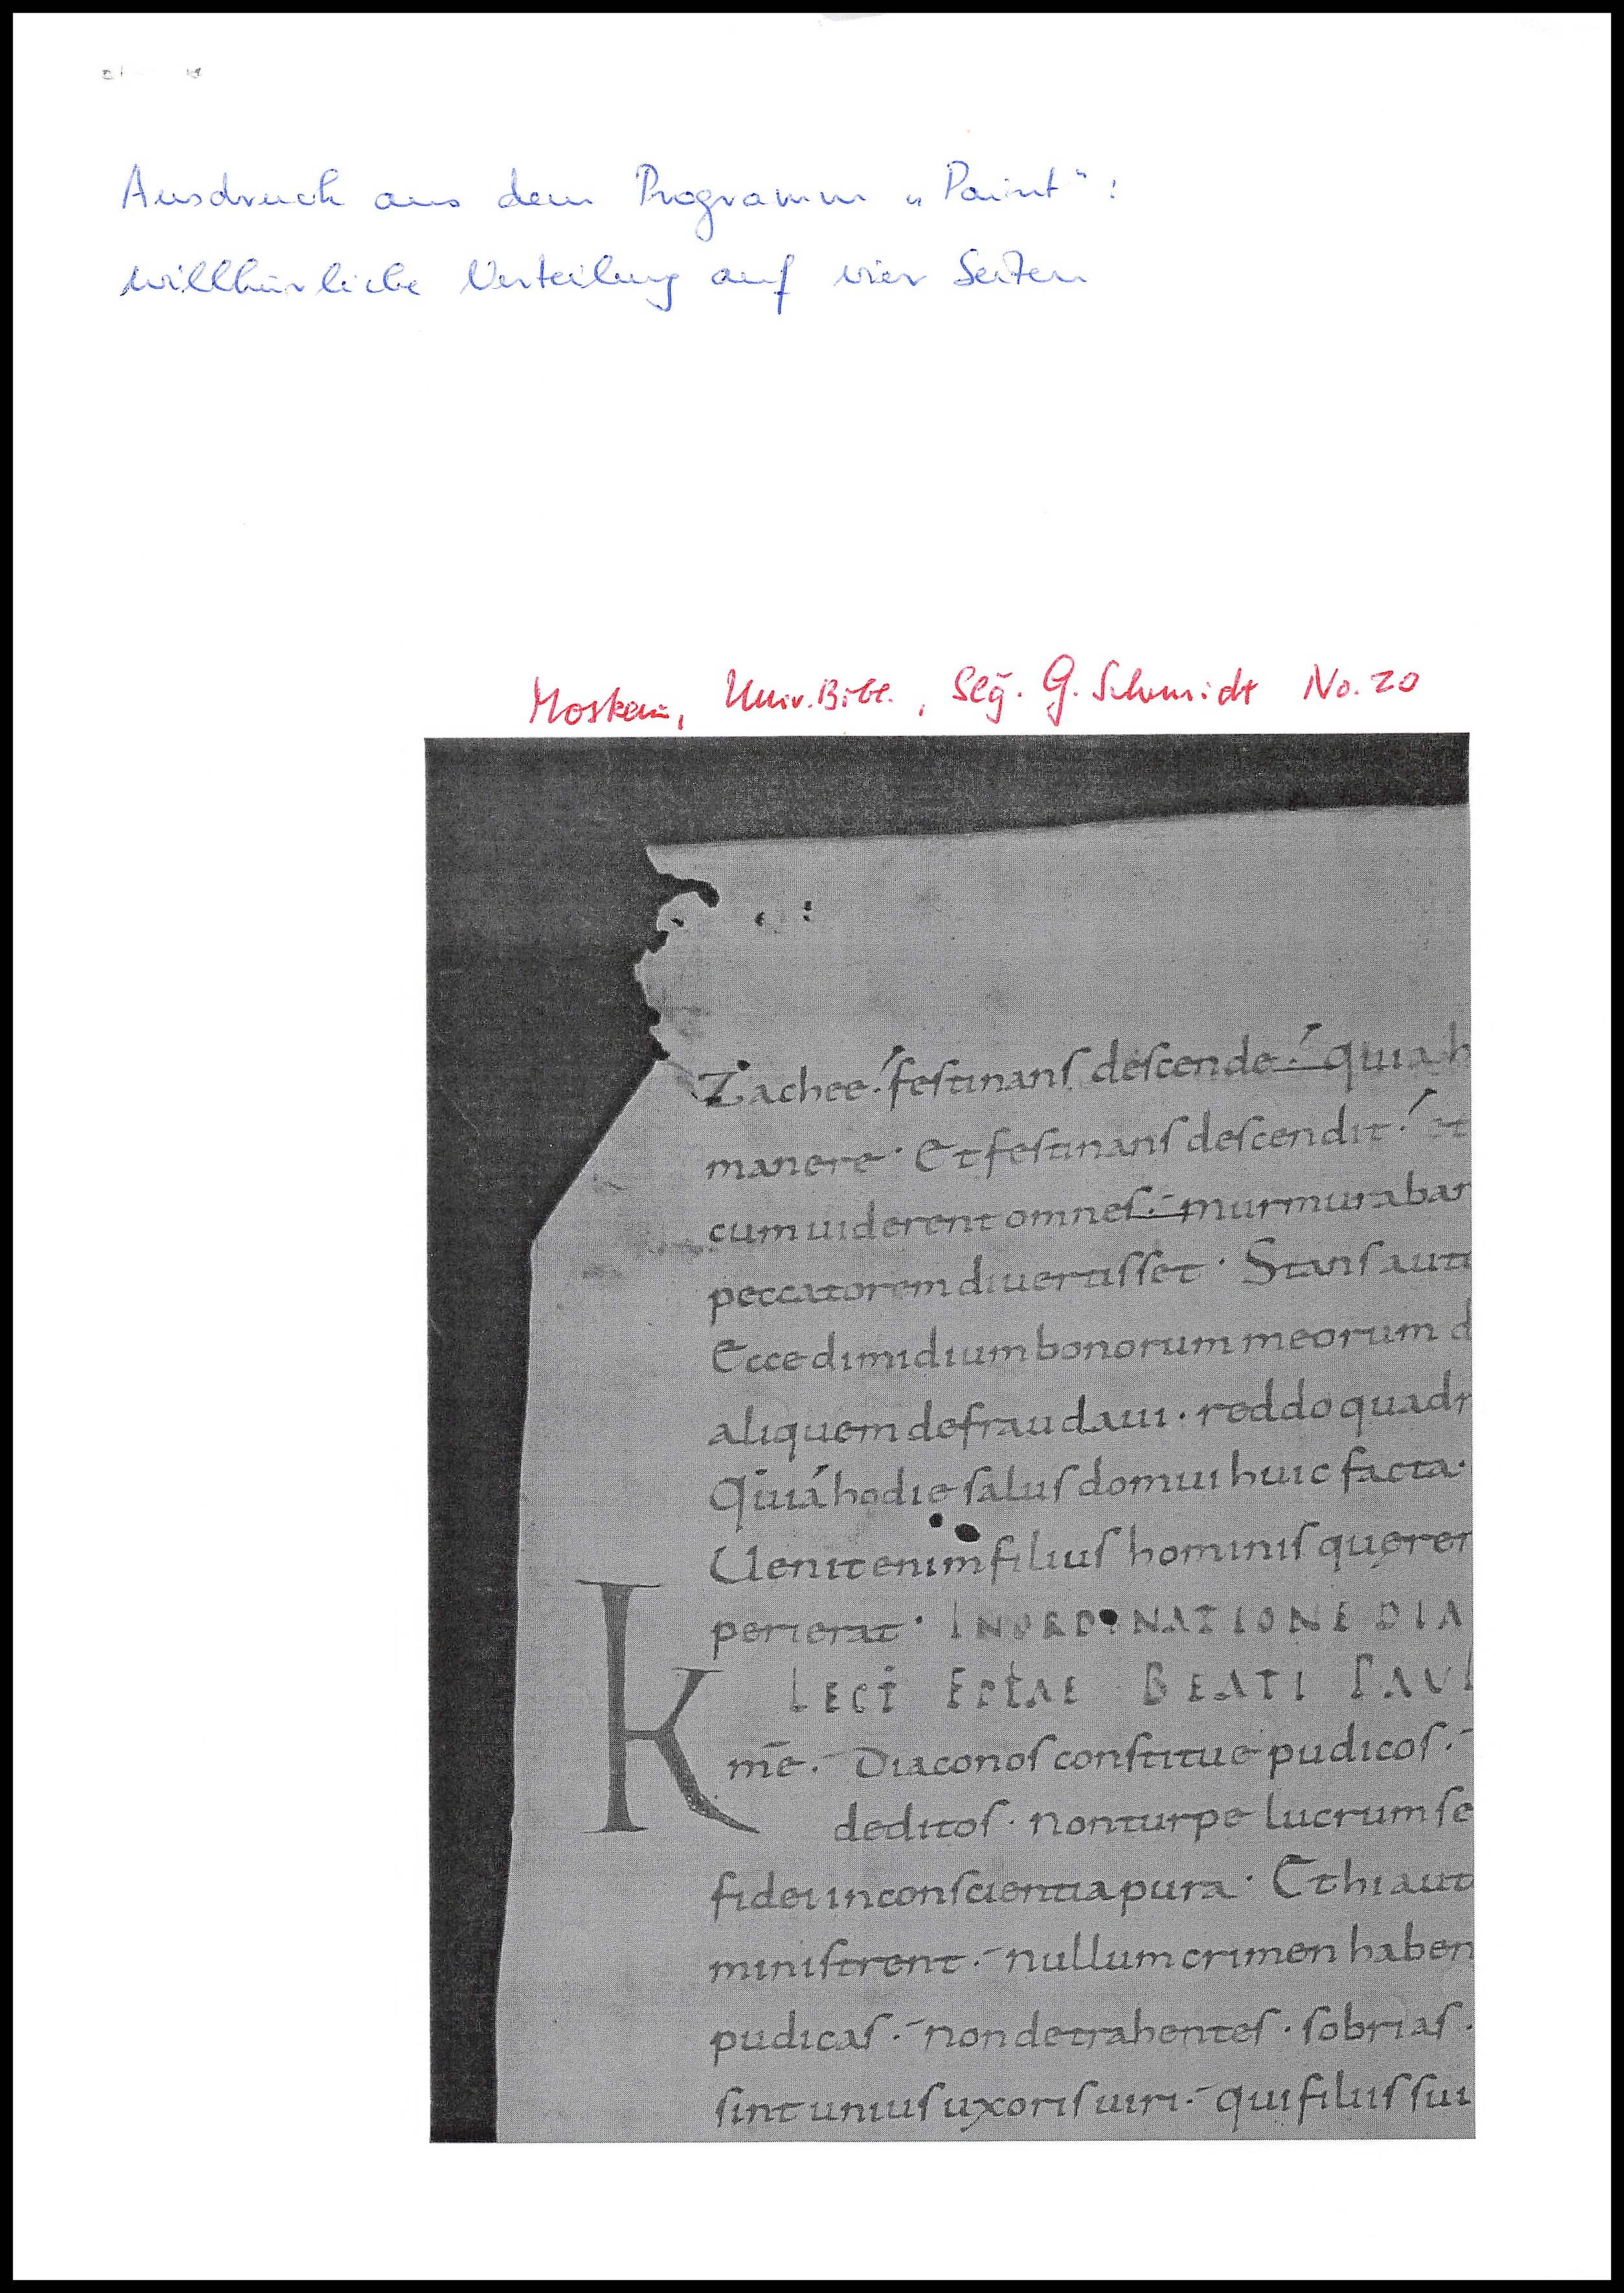 Ausdruck aus dem Programm „Paint“:
willkürliche Verteilung auf vier Seiten
Moskau, Univ. Bibl., Slg. G. Schmidt No. 20
Zachee. festinans descende. quia h
manere. Et festinans descendit. et
cum uiderent omnes. murmurabar
peccatorem diuertisset. Stans aut
Ecce dimidium bonorum meorum d
aliquem defraudaui. reddo quadr
Quia hodie salus domui huic facta.
Uenit enim filius hominis querer
perierat. IN ORDINATIONE DIA
LECT EPLAE BEATI PAUL
K
me. Diaconos constitue pudicos.
deditos. non turpe lucrum se
fidei in conscientia pura. Et hi aut
ministrent. nullum crimen haben
pudicas. non detrahentes. sobrias.
sint unius uxoris uiri. qui filiis sui